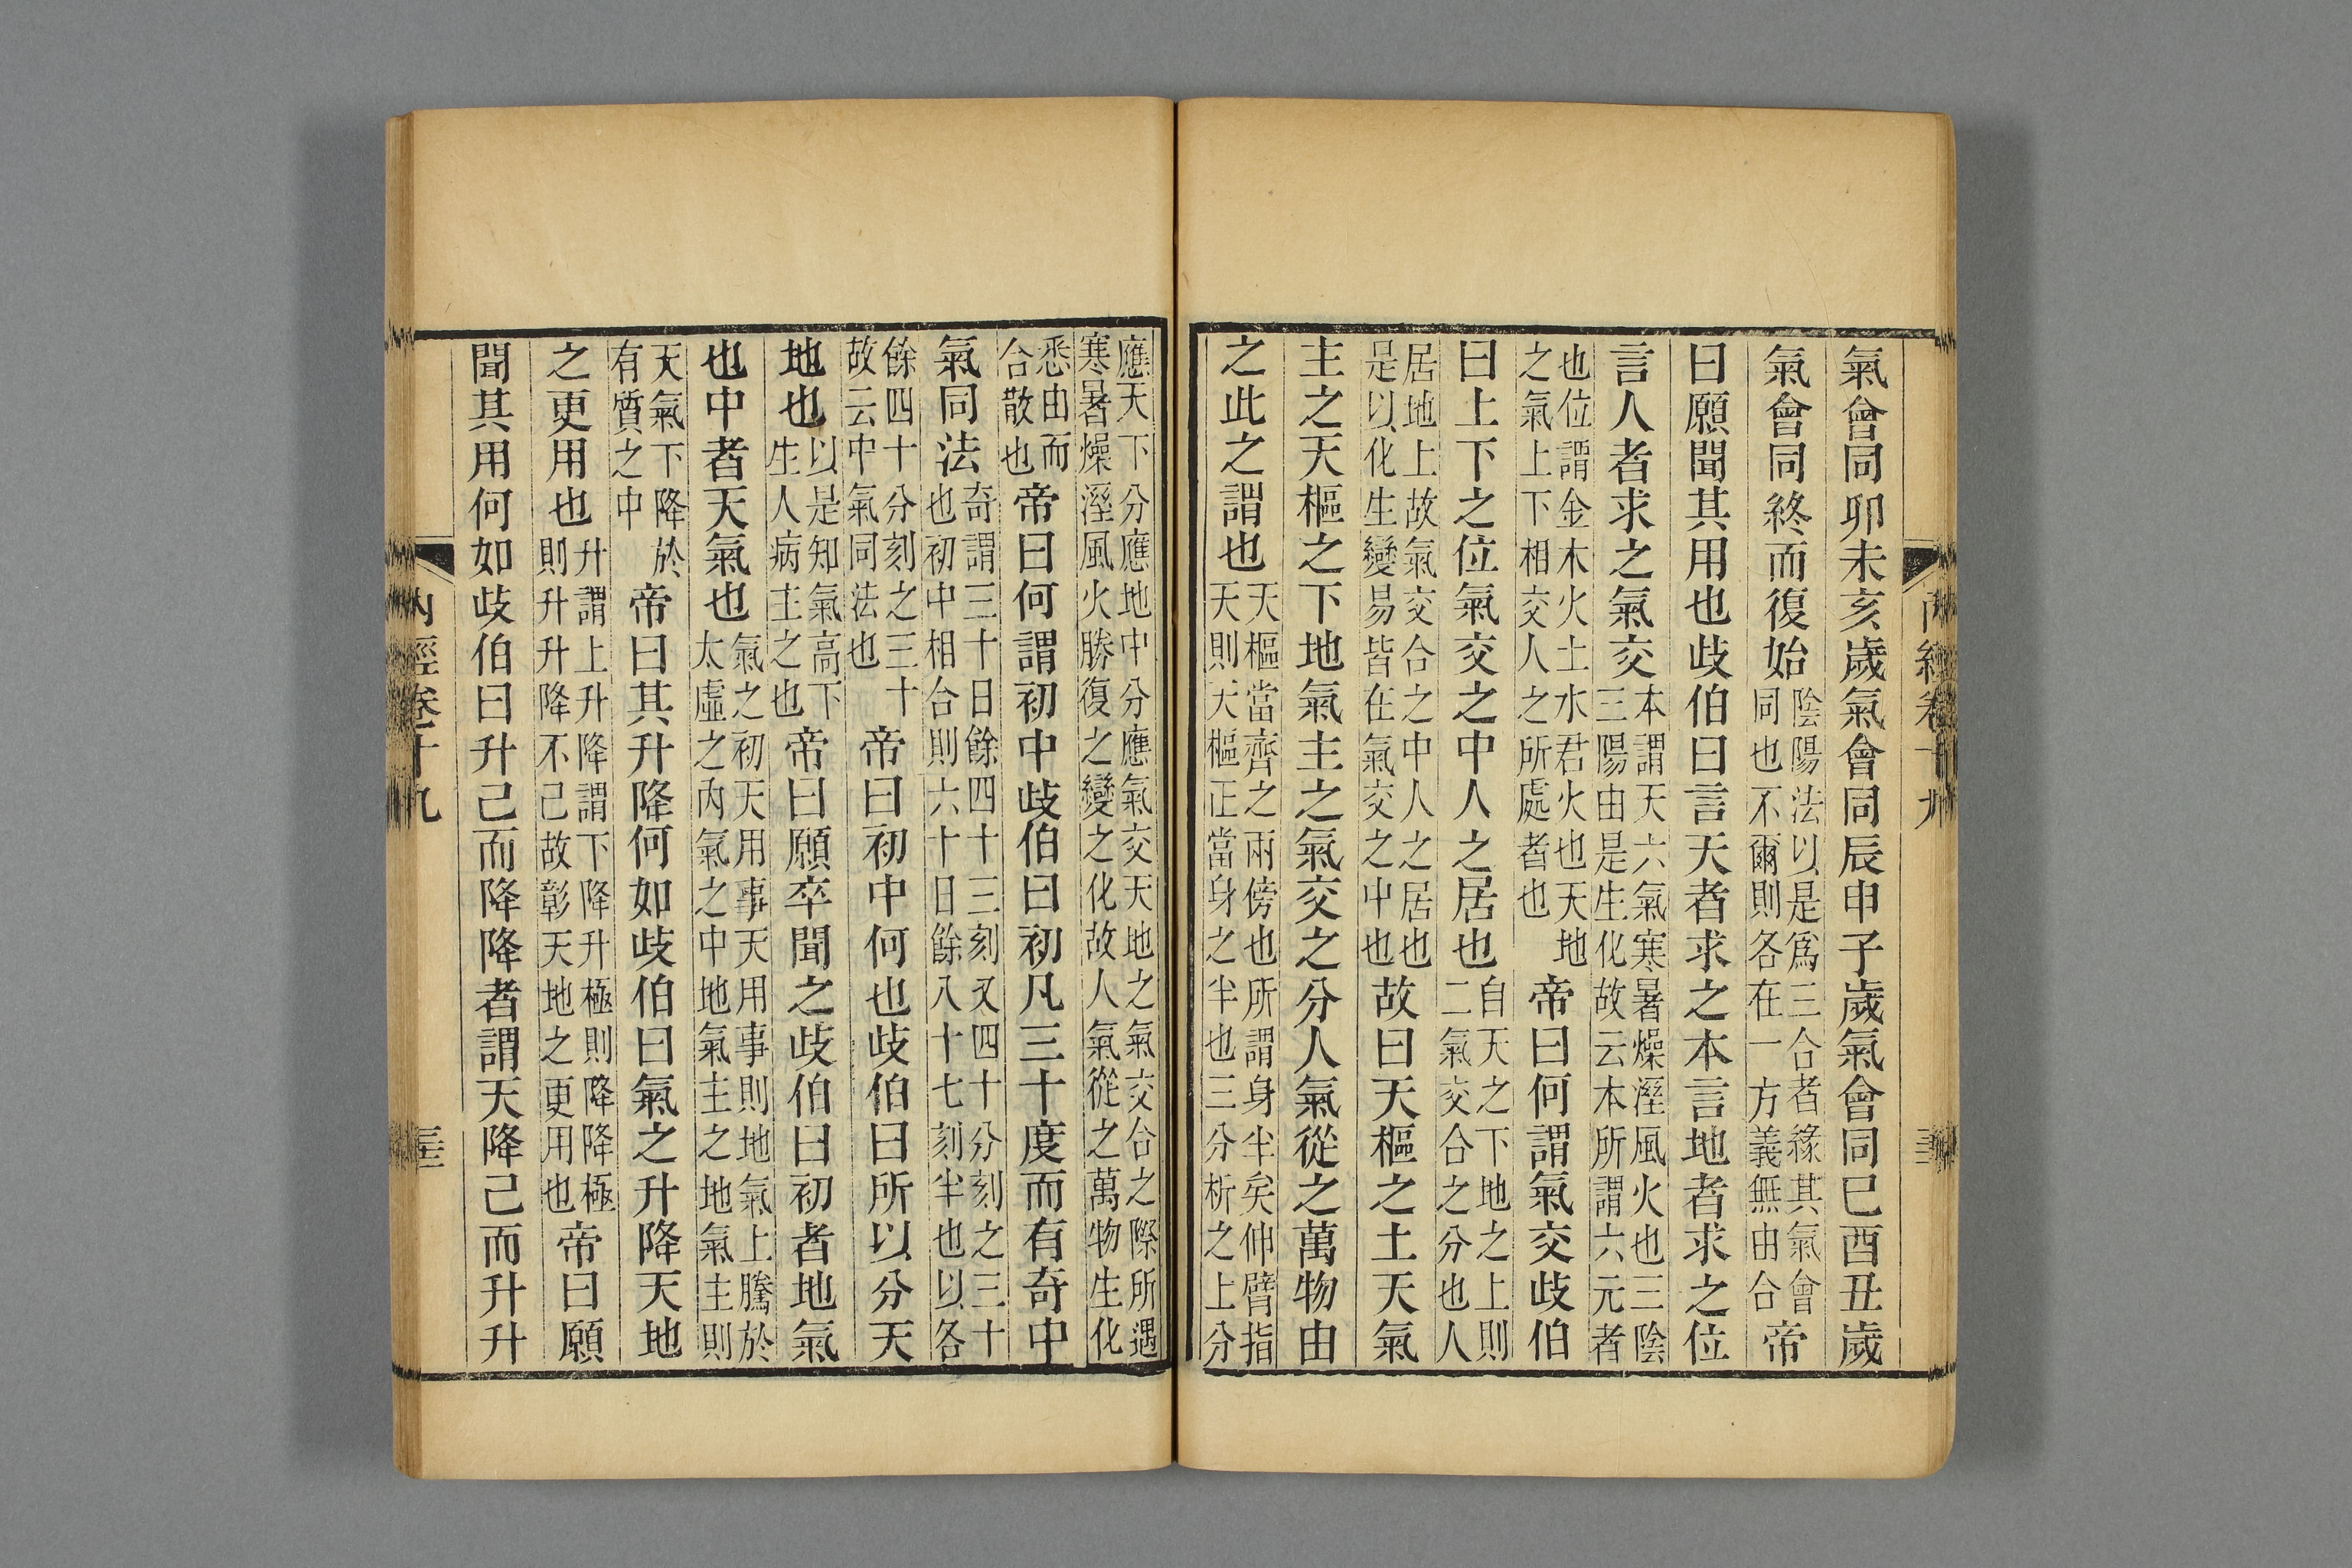 氣會同卯未亥歲氣會同辰申子歲氣會同巳酉丑歲
氣會同終而復始陰陽法以是爲三合者緣其氣會同也不爾則各在一方義無由合帝
曰願聞其用也歧伯曰言天者求之本言地者求之位
言人者求之氣交本謂天六氣寒暑燥溼風火也三陰三陽由是生化故云本所謂六元者
也位謂金木火土水君火也天地之氣上下相交人之所處者也帝曰何謂氣交歧伯
曰上下之位氣交之中人之居也自天之下地之上則二氣交合之分也人
居地上故氣交合之中人之居也是以化生變易皆在氣交之中也故曰天樞之土天氣
主之天樞之下地氣主之氣交之分人氣從之萬物由
之此之謂也天樞當齊之兩傍也所謂身半矣伸臂指天則天樞正當身之半也三分析之上分
應天下分應地中分應氣交天地之氣交合之際所遇寒暑燥溼風火勝復之變之化故人氣從之萬物生化
悉由而合散也帝曰何謂初中歧伯曰初凡三十度而有奇中
氣同法奇謂三十日餘四十三刻又四十分刻之三十也初中相合則六十日餘八十七刻半也以各
餘四十分刻之三十故云中氣同法也帝曰初中何也歧伯曰所以分天
地也以是知氣高下生人病主之也帝曰願卒聞之歧伯曰初者地氣
也中者天氣也氣之初天用事天用事則地氣上騰於太虛之內氣之中地氣主之地氣主則
天氣下降於有質之中帝曰其升降何如歧伯曰氣之升降天地
之更用也升謂上升降謂下降升極則降降極則升升降不已故彰天地之更用也帝曰願
聞其用何如歧伯曰升已而降降者謂天降已而升升
內經卷十九